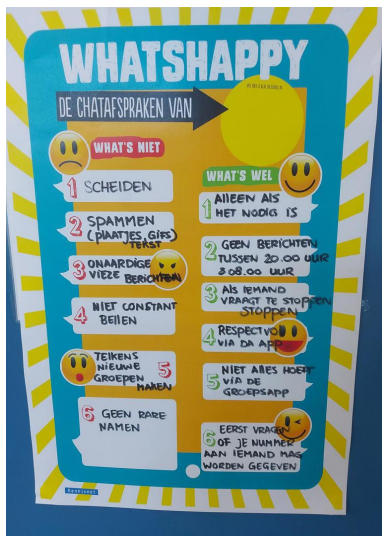 WHATSHAPPY
DE CHATAFSPRAKEN VAN
WHAT'S NIET
1 SCHEIDEN
2 SPAMMEN
(PLAATJES, GIFS)
TEKST
3 ONAARDIGE
VIEZE BERICHTEN
4 NIET CONSTANT
BELLEN
5 TELKENS
NIEUWE
GROEPEN
MAKEN
6 GEEN RARE
NAMEN
WHAT'S WEL
1 ALLEEN ALS
HET NODIG IS
2 GEEN BERICHTEN
TUSSEN 20.00 UUR
& 08.00 UUR
3 ALS IEMAND
VRAAGT TE STOPPEN
STOPPEN
4 RESPECTVO
VIA DA APP
5 NIET ALLES HOEFT
VIA DE
GROEPSAPP
6 EERST VRAGEN
OF JE NUMMER
AAN IEMAND MAG
WORDEN GEGEVEN